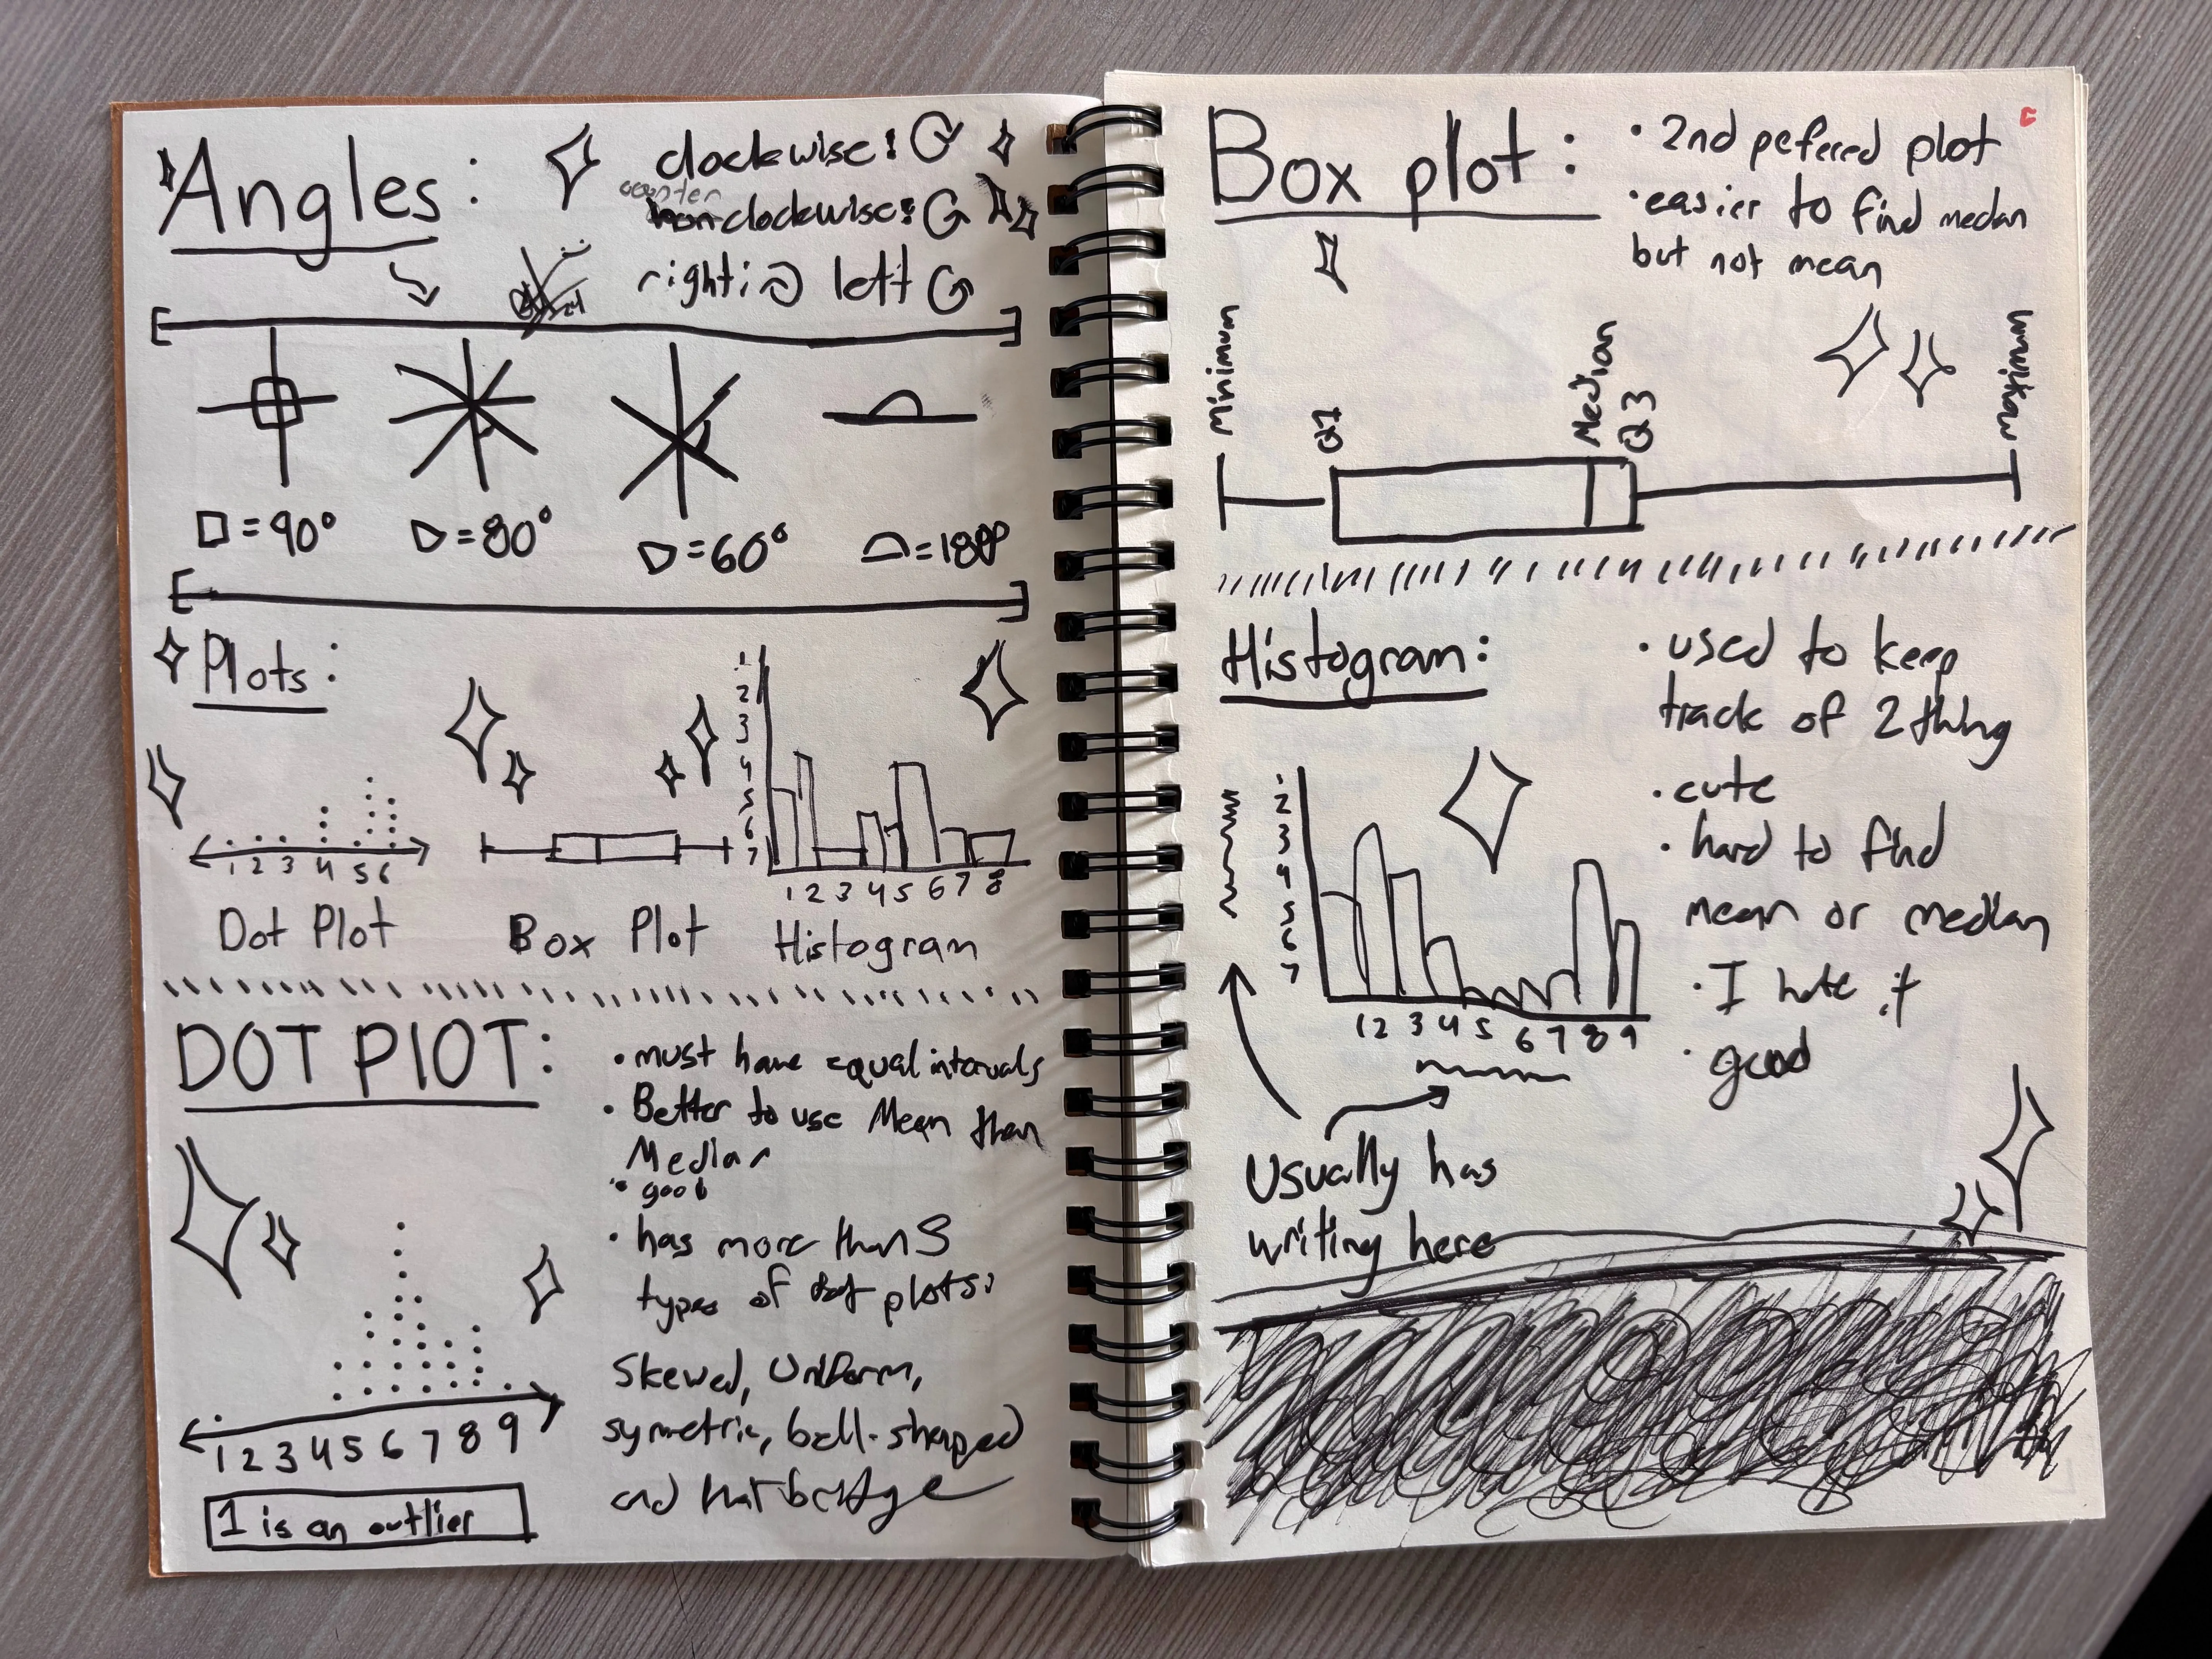 Angles:
clockwise:
counter
clockwise:
right: left
□=90°
=80°
=60°
=180°
Plots:
1
2
3
4
5
6
7
1 2 3 4 5 6
1 2 3 4 5 6 7 8
Dot Plot
Box Plot
Histogram
DOT PLOT:
• must have equal intervals
• Better to use Mean than
Median
• good
• has more than 5
types of dot plots:
Skewed, Uniform,
symetric, bell-shaped
and
1 2 3 4 5 6 7 8 9
1 is an outlier
Box plot:
• 2nd pefered plot
• easier to find medan
but not mean
Minimum
Q1
Median
Q3
Maximum
Histogram:
• used to keep
track of 2 thing
• cute
• hard to find
mean or median
• I hate it
• good
1
2
3
4
5
6
7
1 2 3 4 5 6 7 8 9
Usually has
writing here